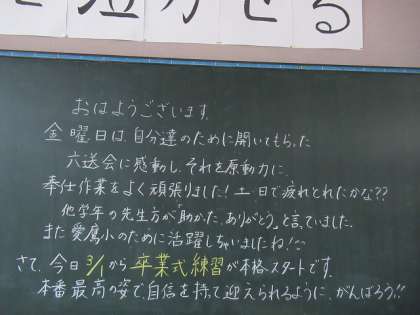 を泣かせる
おはようございます。
金曜日は、自分達のために開いてもらった
六送会に感動し、それを原動力に、
奉仕作業をよく頑張りました!土日で疲れとれたかな??
他学年の先生方が「助かった、ありがとう」と言っていました。
また愛鷹小のために活躍しちゃいましたね!!
さて、今日3/1から卒業式練習が本格スタートです。
本番最高の姿で自信を持って迎えられるように、がんばろう!!